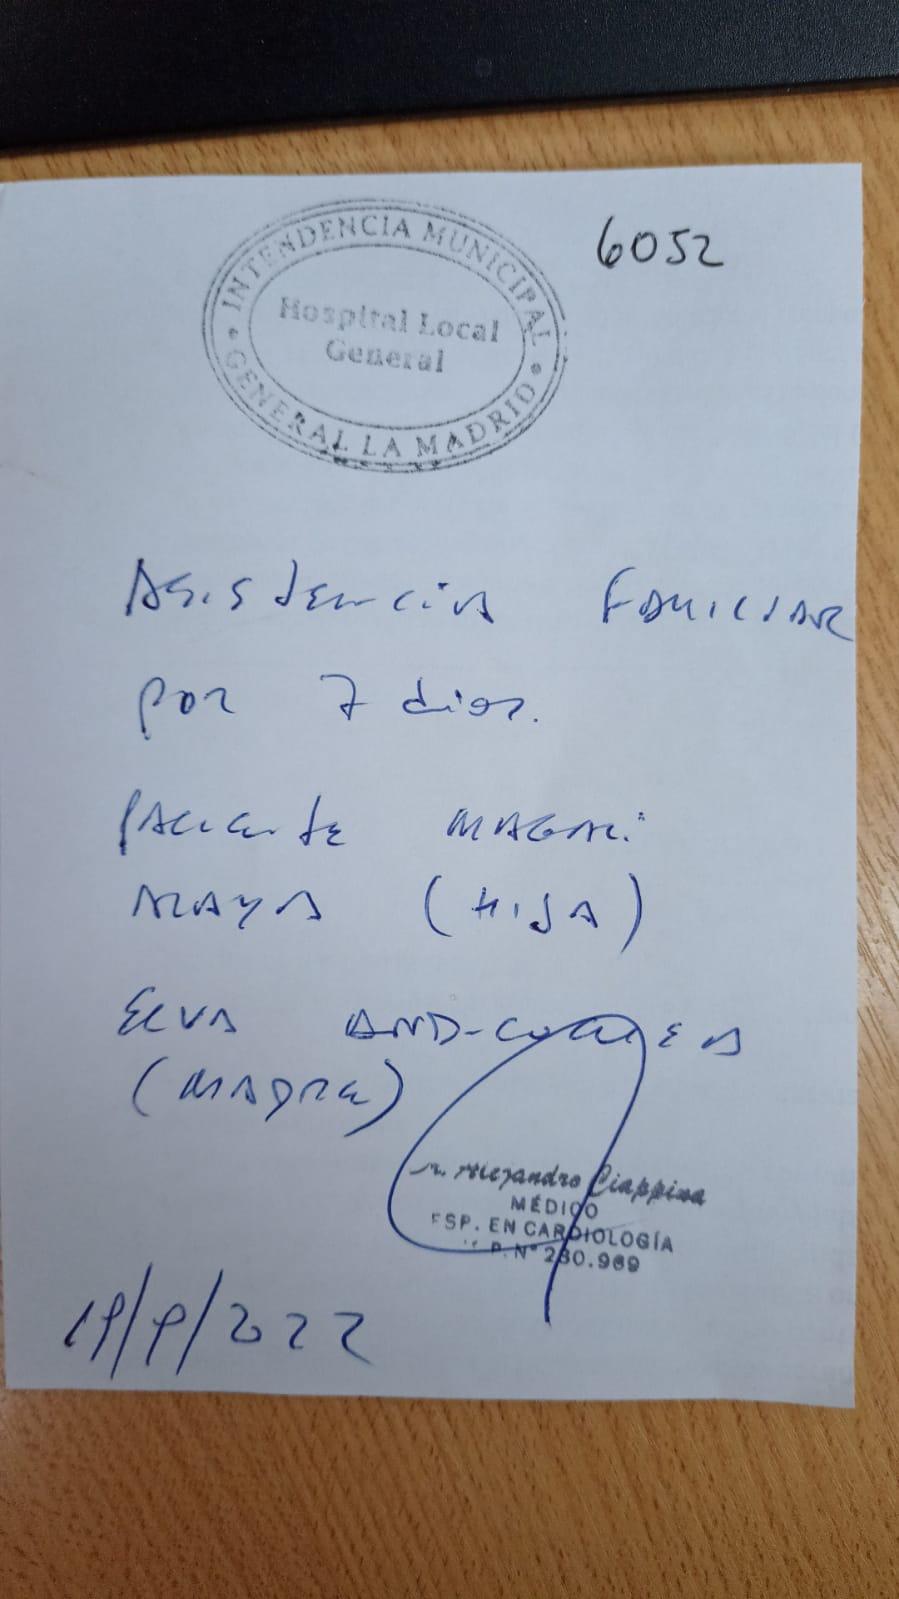 INTENDENCIA MUNICIPAL
Hospital Local
General
GENERAL LA MADRID
6052
Asistencia Familiar
por 7 dias.
Paciente MAGALI
(HIJA)
ELVA
(MADRE)
Alejandro Ciappina
MÉDICO
ESP. EN CARDIOLOGÍA
P. Nº 230.969
19/9/2022